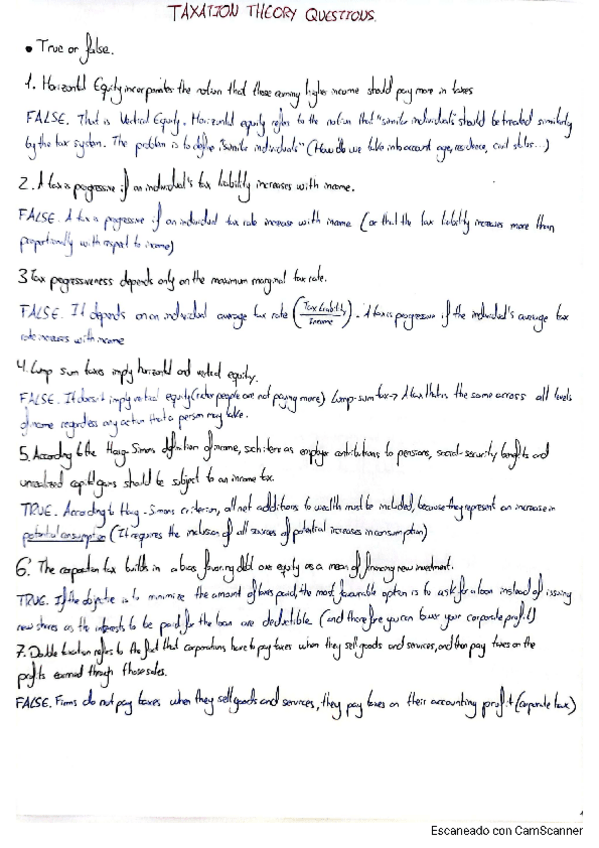 TAXATION THEORY QUESTIONS.
• True or false.
1. Horizontal Equity incorporates the notion that those earning higher income should pay more in taxes
FALSE. That is Vertical Equity. Horizontal equity refers to the notion that "similar individuals" should be treated similarly
by the tax system. The problem is to define "similar individuals" (How do we take into account age, residence, civil status...)
2. A tax is progressive if an individual's tax liability increases with income.
FALSE. A tax is progressive if an individual tax rate increase with income (or that the tax liability increases more than
proportionally with respect to income)
3 Tax progressiveness depends only on the maximum marginal tax rate.
FALSE. It depends on an individual average tax rate (Tax liability / income). A tax is progressive if the individual's average tax
rate increases with income
4. Lump sum taxes imply horizontal and vertical equity.
FALSE. It doesn't imply vertical equity (richer people are not paying more) Lump-sum tax → A tax that is the same across all levels
of income regardless any action that a person may take.
5. According to the Haig-Simons definition of income, such items as employer contributions to pensions, social-security benefits and
unrealized capital gains should be subject to an income tax.
TRUE. According to Haig-Simons criterion, all net additions to wealth must be included, because they represent an increase in
potential consumption (It requires the inclusion of all sources of potential increases in consumption)
6. The corporation tax builds in a bias favoring debt over equity as a mean of financing new investment.
TRUE. If the objective is to minimize the amount of taxes paid, the most favourable option is to ask for a loan instead of issuing
new shares as the interests to be paid for the loan are deductible. (and therefore you can lower your corporate profit!)
7. Double taxation refers to the fact that corporations have to pay taxes when they sell goods and services, and then pay taxes on the
profits earned through those sales.
FALSE. Firms do not pay taxes when they sell goods and services, they pay taxes on their accounting profit (corporate tax)
Escaneado con CamScanner